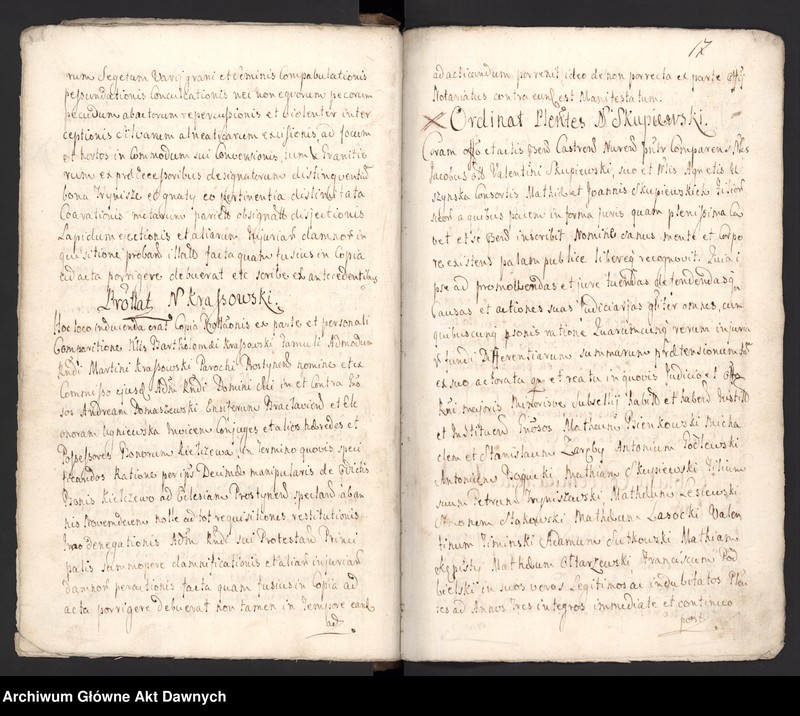 rum Segetum Varij grani et seminis Compabulationis
pessundationis Conculcationis nec non equorum pecorum
pecudum abactorum repercussionis et violenter inter
ceptionis et lvarum alneatycarum excisionis, ad focum
et hortos in Commodum sui Conversionis, tum Graniti
rum ex prædecessoribus designatorum distinguentiu
bona Trynisze cognaty eo pertinentia distinctata
Coarationis metarum parietu obsignatu disjectionis
Lapidum ejectionis et aliarum Injuriar damnor in
quisitione probandu illatu facta quam fusius in Copia
ad acta porrigere debuerat etc scribe ex antecedentibus
Prottat N Krassowski.
Hoc loco inducenda erat Copia ex parte et personali
Comparitione Nlis Bartholomæi Krassowski famuli Admodum
Rndi Martini Krassowski Parochi Prostynen nomine et ex
Commisso ejusdem Adm Rndi Domini sui in et Contra Gno
sos Andream Domaszewski Ensiferum Braclavien et Ele
onoram Ugniewska invicem Conjuges et alios hæredes et
Possessores Bonorum Kielczewa in Termino quovis speci
ficandos Ratione per ips Decimæ manipularis de
Bonis Kielczewo ad Eclesiam Prostynen spectan ab an
nis Novemdecem nolle ad tot requisitiones restitutionis
Imo denegationis Adm Rndi sui Protestan Princi
palis summopere damnificationis et aliar injuriar
damnor percutionis facta quam fusius in Copia ad
acta porrigere debuerat non tamen in Tempore eand
ad
17
ad acticandum porrenit, ideo de non porrecta ex parte Offij
Notariatus contra eund est Manifestatum.
Ordinat Plentes N Skupiewski.
Coram offo et actis Gsen Castren Nuren Prntr Comparens Nlis
Jacobus olim Valentini Skupiewski, suo et Nlis Agnetis Ki
szynska Consortis Mathiæ et Joannis Skupiewskich Filior
suor a quibus pacem in forma juris quam plenissima Ca
vet et se Gsen inscribit Nomine sanus mente et corpo
re existens palam publice libereq recognovit. Quia i
pse ad promovendas et jure tuendas defendendasq
Causas et actiones suas judiciarias gliter omnes, cum
quibuscunq psonis ratione quarumcunq rerum injuria
fundi Differentiarum summarum prætensionum
ex suo actoratu qm et reatu in quovis Judicio et offo
Rni majoris Minorisve subsellij habito et habend Instituto
et Instituend Gnosos Mathæum Psienkowski Micha
elem et Stanislaum Zaręby Antonium Podlewski
Antonium Rogucki Mathiam Skupiewski Filium
suum Petrum Tryniszewski Mathæum Lesiewski
Simonem Makowski Mathæum Lasocki Valen
tinum Ziminski Adamum Sutkowski Mathiam
Okępisty Mathæum Ołtarzewski Franciscum Pod
bielski in suos veros Legitimos ac indubitatos Plen
tes ad Annos Tres integros immediate et continuo
post
Archiwum Główne Akt Dawnych